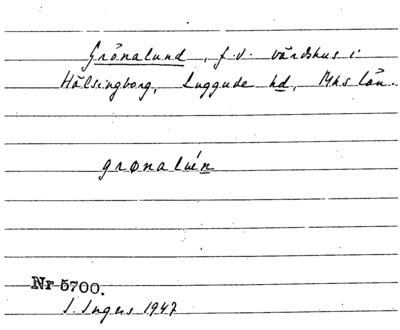 Grönalund, f.d. värdshus i
Hälsingborg, Luggude hd, Mhs län.
grønalu´en
Nr 5700.
I. Ingers 1947